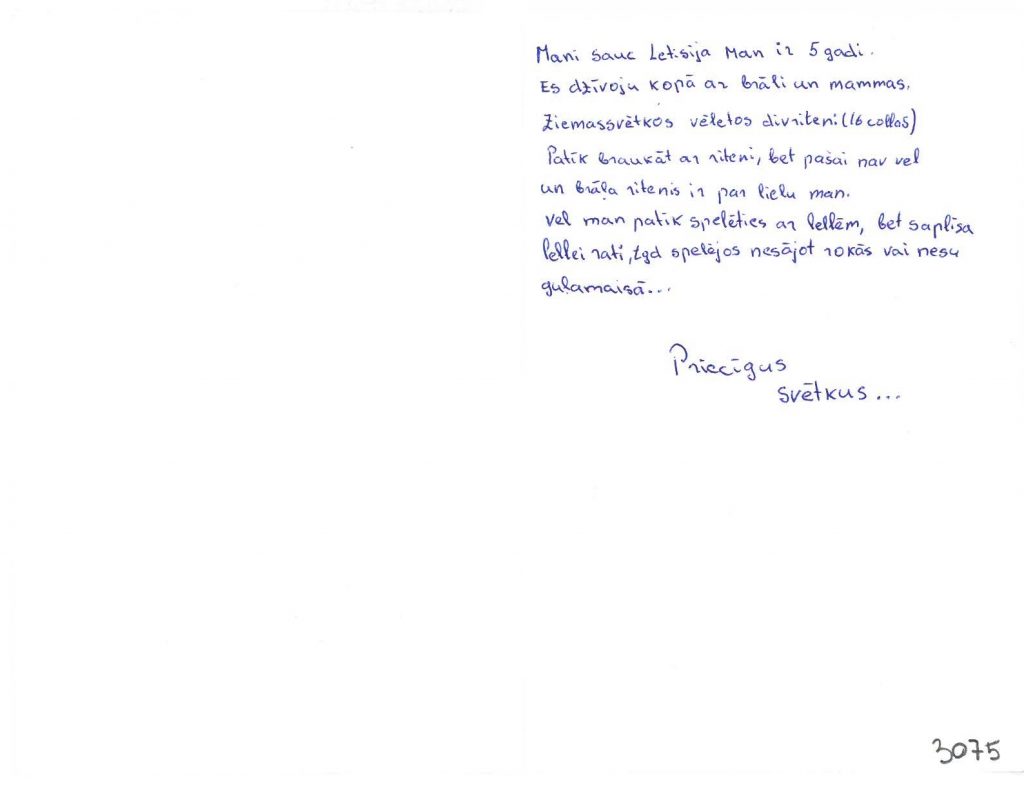 Mani sauc Letisija Man ir 5 gadi.
Es dzīvoju kopā ar brāli un mammas.
Ziemassvētkos vēletos divriteni (16 collas)
Patīk braukāt ar riteni, bet pašai nav vel
un brāļa ritenis ir par lielu man.
Vel man patīk spelēties ar lellēm, bet saplīsa
lellei rati, tgd spelējos nesājot rokās vai nesu
guļamaisā...
Priecīgus
svētkus...
3075